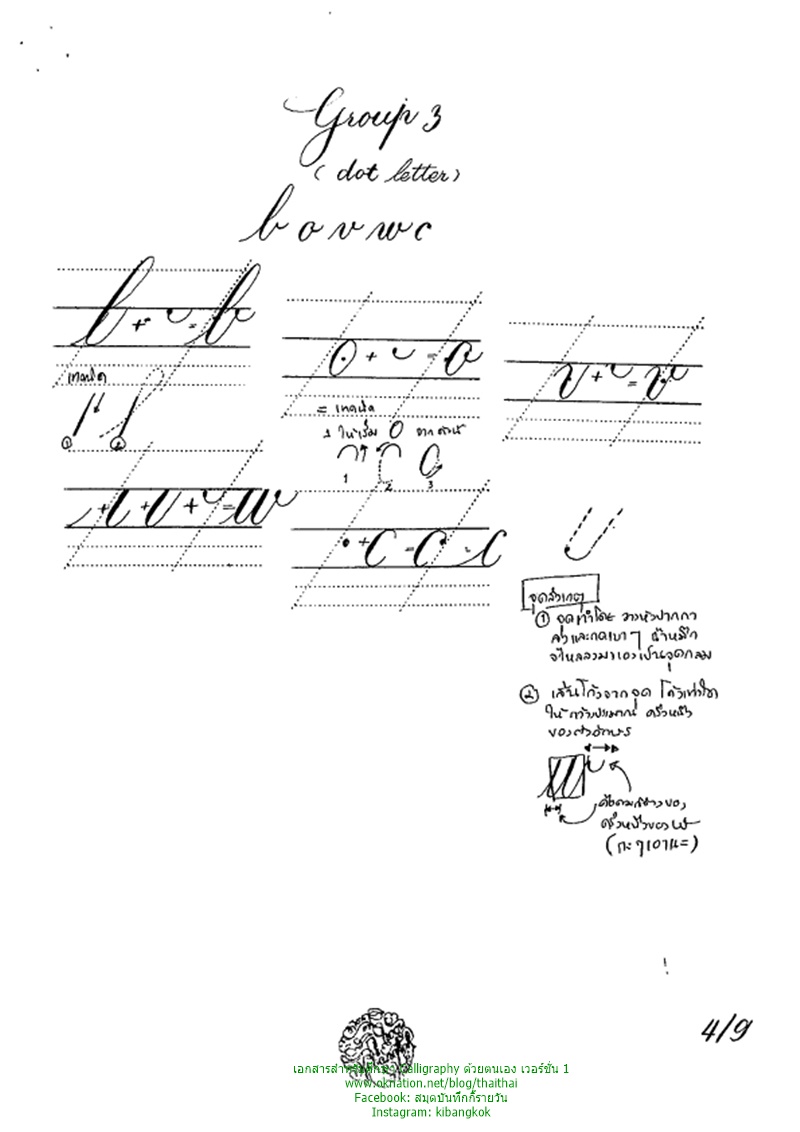 Group 3
( dot letter)
b o v w c
b + = b
o + = o
v + = v
เทคนิค
① ②
= เทคนิค
1 ให้เริ่ม O จาก
1 2 3
+ + + = w
+ c = c = c
จุดสังเกตุ
① จุดทำโดย วางหัวปากกา
ลงและกดเบา ๆ น้ำหมึก
จะไหลลงมาเองเป็นจุดกลม
② เส้นโค้งจากจุด
ให้กว้างประมาณ ครึ่งหนึ่ง
ของตัวอักษร
คือความกว้างของ
ครึ่งหนึ่งของ
(กะ ๆ เอานะ)
4/9
เอกสารสำหรับฝึก Calligraphy ด้วยตนเอง เวอร์ชั่น 1
www.oknation.net/blog/thaithai
Facebook: สมุดบันทึกกี้รายวัน
Instagram: kibangkok